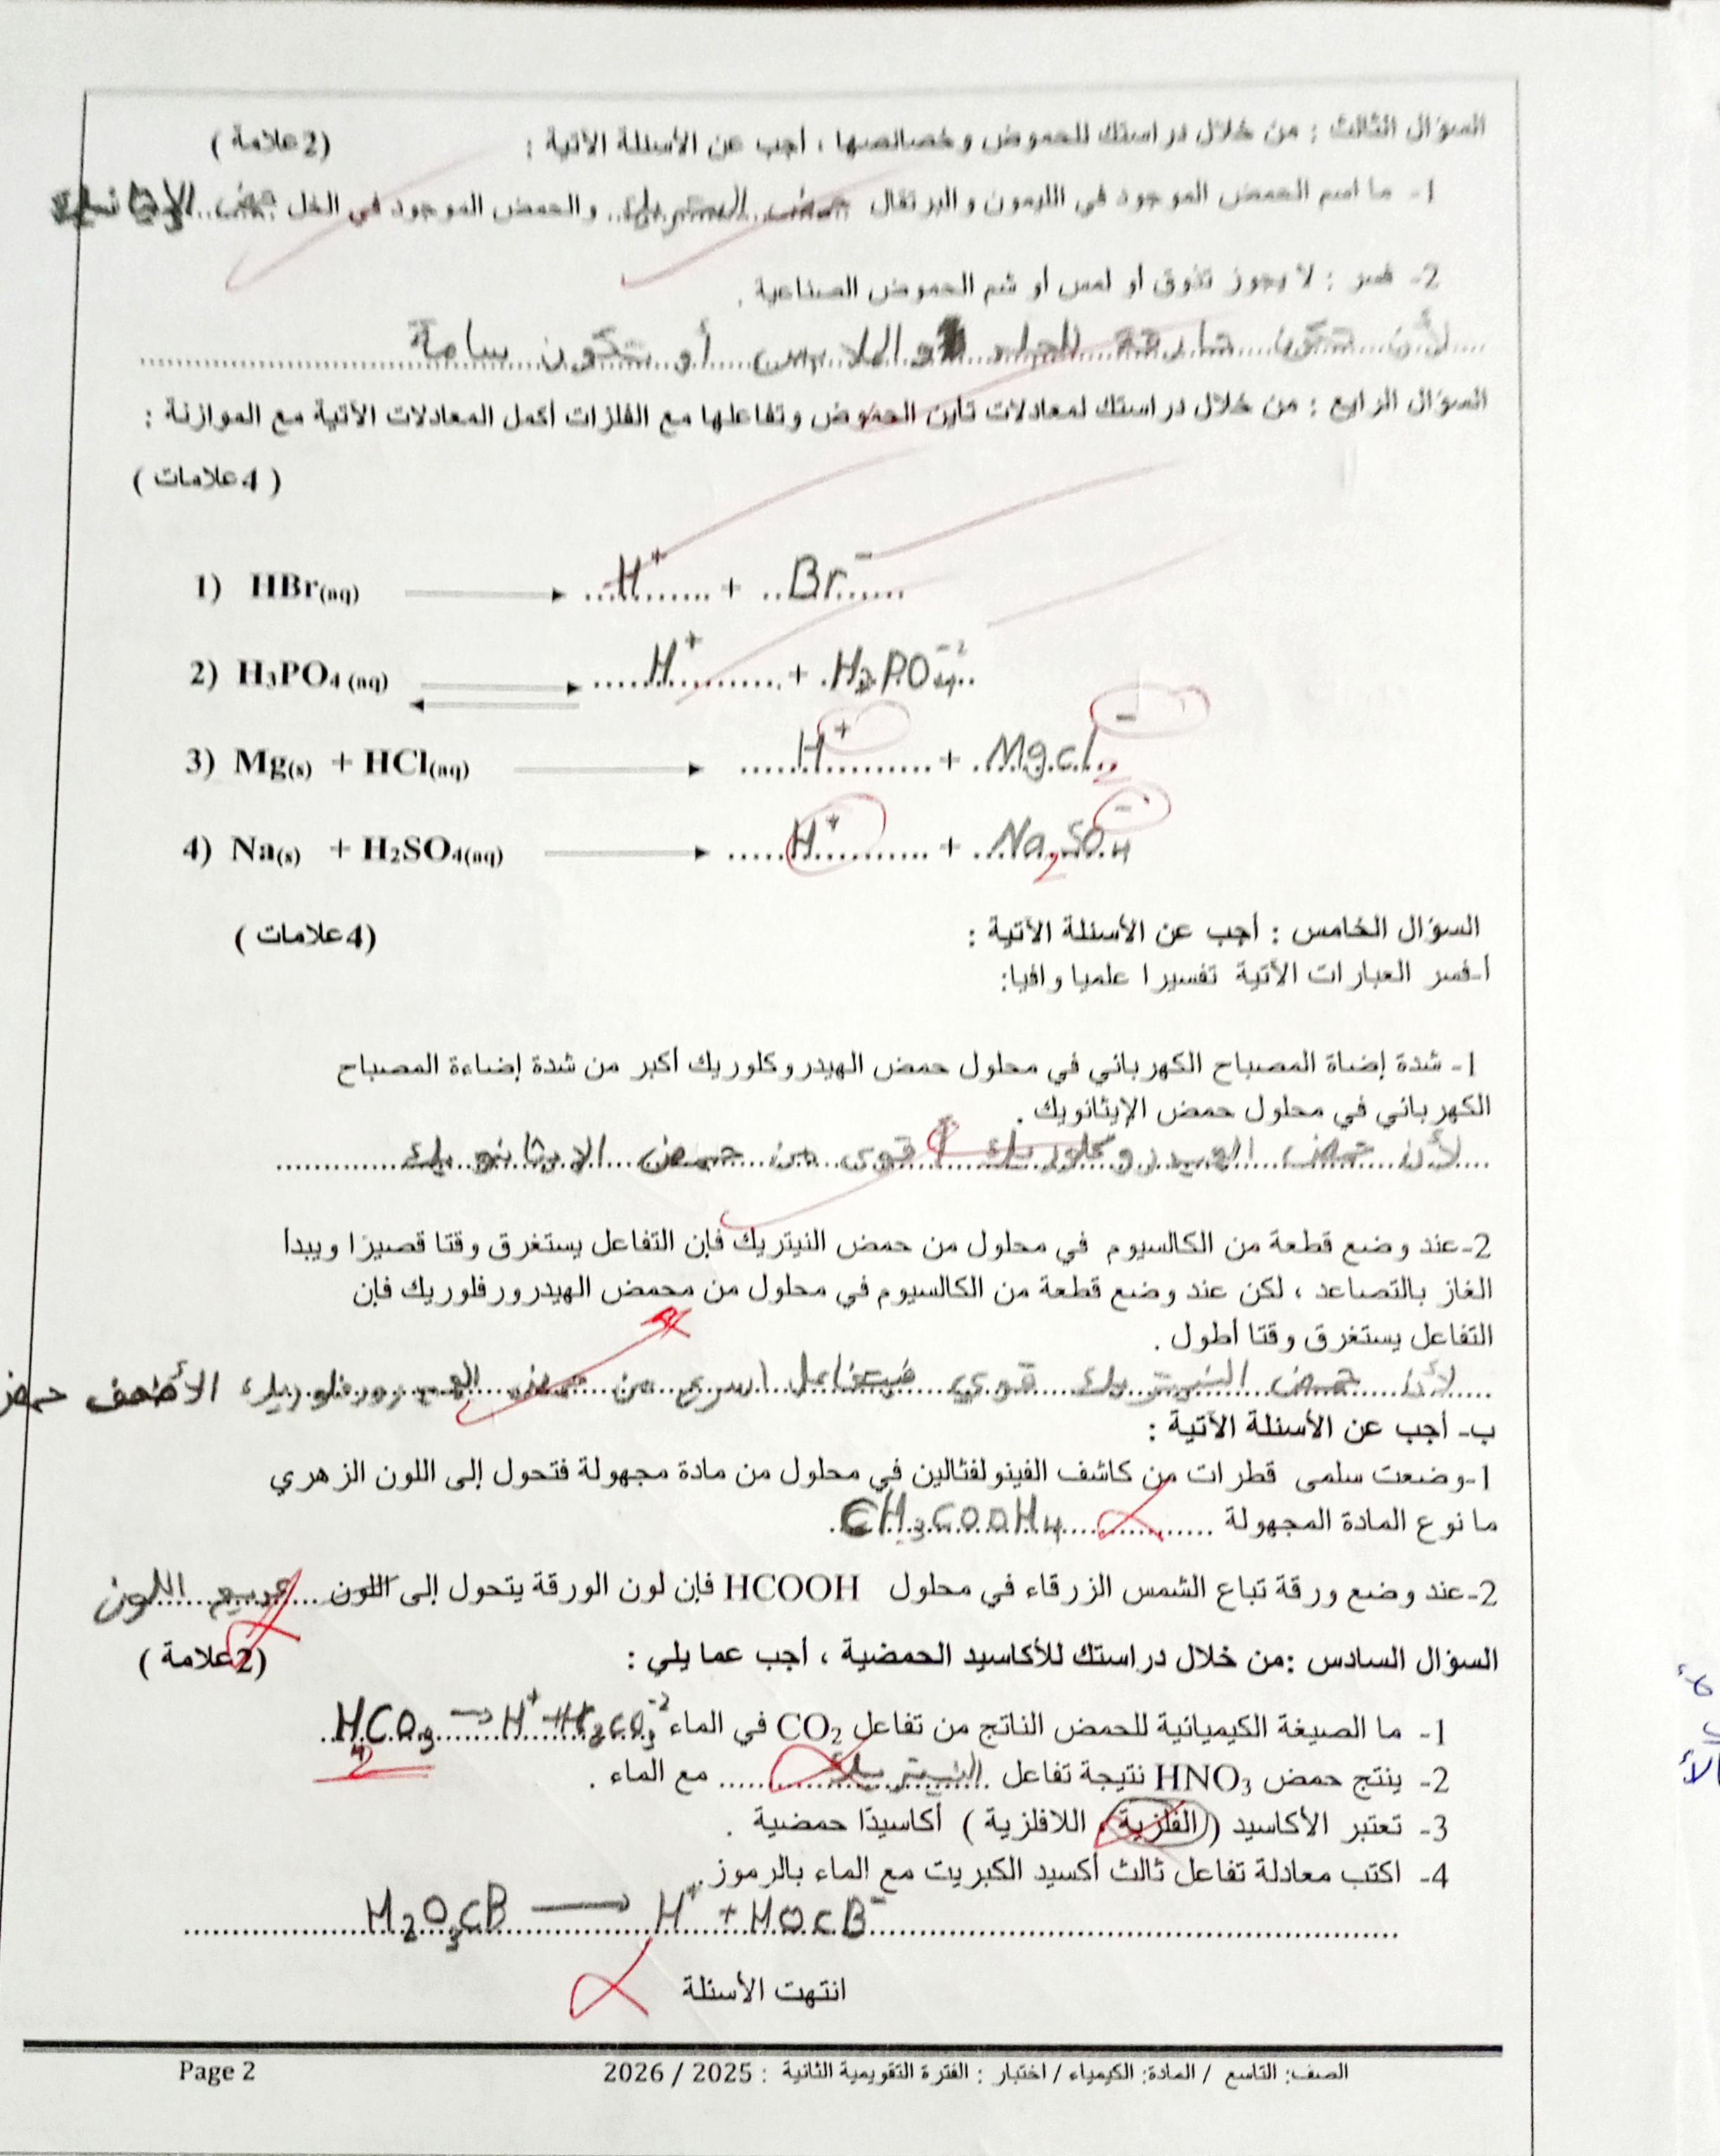 السؤال الثالث : من خلال دراستك للحموض وخصائصها ، أجب عن الأسئلة الآتية : (2علامة )
1- ما اسم الحمض الموجود في الليمون والبرتقال حمض الستريك والحمض الموجود في الخل حمض
2- فسر : لا يجوز تذوق أو لمس أو شم الحموض الصناعية .
لأن تكون حارقة للجلد والملابس أو تكون سامة
السؤال الرابع : من خلال دراستك لمعادلات تأين الحموض وتفاعلها مع الفلزات أكمل المعادلات الآتية مع الموازنة :
( 4علامات )
1) HBr(aq) → H⁺ + Br⁻
2) H₃PO₄ (aq) ⇌ H⁺ + H₂PO₄⁻²
3) Mg(s) + HCl(aq) → H⁺ + MgCl₂⁻
4) Na(s) + H₂SO₄(aq) → H⁺ + Na₂SO₄⁻
السؤال الخامس : أجب عن الأسئلة الآتية : (4علامات )
أ-فسر العبارات الآتية تفسيرا علميا وافيا:
1- شدة إضاة المصباح الكهربائي في محلول حمض الهيدروكلوريك أكبر من شدة إضاءة المصباح
الكهربائي في محلول حمض الإيثانويك .
لأن حمض الهيدروكلوريك أقوى من حمض الايثانويك
2-عند وضع قطعة من الكالسيوم في محلول من حمض النيتريك فإن التفاعل يستغرق وقتا قصيرا ويبدأ
الغاز بالتصاعد ، لكن عند وضع قطعة من الكالسيوم في محلول من محمض الهيدرورفلوريك فإن
التفاعل يستغرق وقتا أطول .
لأن حمض النيتريك قوي فيتفاعل اسرع من حمض الهيدروفلوريك الأضعف حمض
ب- أجب عن الأسئلة الآتية :
1-وضعت سلمى قطرات من كاشف الفينولفثالين في محلول من مادة مجهولة فتحول إلى اللون الزهري
ما نوع المادة المجهولة CH₃COOH₄
2-عند وضع ورقة تباع الشمس الزرقاء في محلول HCOOH فإن لون الورقة يتحول إلى اللون عديم اللون
السؤال السادس :من خلال دراستك للأكاسيد الحمضية ، أجب عما يلي : (2علامة )
1- ما الصيغة الكيميائية للحمض الناتج من تفاعل CO₂ في الماء HCO₃ → H⁺ + H₂CO₃⁻²
2- ينتج حمض HNO₃ نتيجة تفاعل النيتريك مع الماء .
3- تعتبر الأكاسيد ( الفلزية ، اللافلزية ) أكاسيدًا حمضية .
4- اكتب معادلة تفاعل ثالث أكسيد الكبريت مع الماء بالرموز.
H₂O₃CB → H⁺ + HOCB⁻
انتهت الأسئلة
الصف: التاسع / المادة: الكيمياء / اختبار : الفترة التقويمية الثانية : 2025 / 2026 Page 2